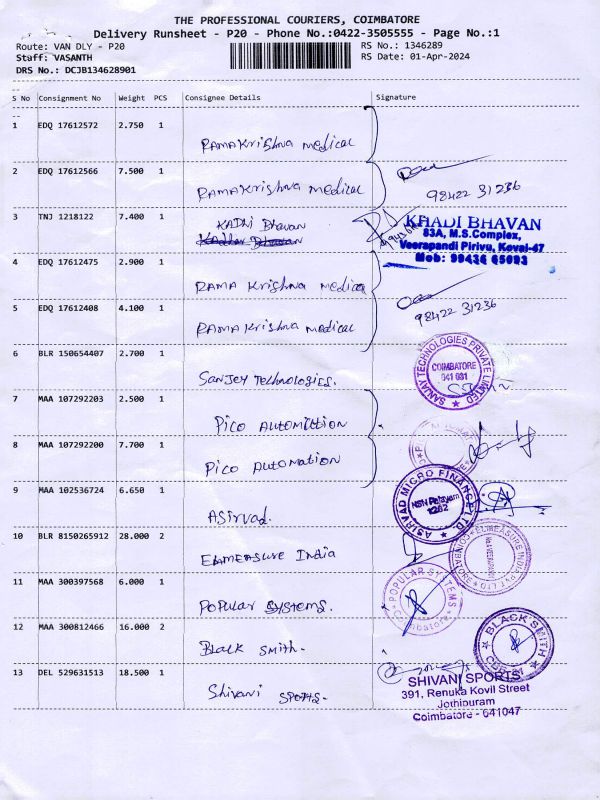 THE PROFESSIONAL COURIERS, COIMBATORE
Delivery Runsheet - P20 - Phone No.:0422-3505555 - Page No.:1
Route: VAN DLY - P20 RS No.: 1346289
Staff: VASANTH RS Date: 01-Apr-2024
DRS No.: DCJB134628901
S No Consignment No Weight PCS Consignee Details Signature
1 EDQ 17612572 2.750 1
RAMAKrishna medical
2 EDQ 17612566 7.500 1
RAMAKrishna medical 98422 31236
3 TNJ 1218122 7.400 1 KADHI Bhavan
KHADI BHAVAN
83A, M.S.Complex,
Veerapandi Pirivu, Kovai-47
Mob: 99436 65093
4 EDQ 17612475 2.900 1
RAMA Krishna medical
5 EDQ 17612408 4.100 1
RAMA Krishna medical 98422 31236
6 BLR 150654407 2.700 1
Sanjey Technologies.
SANJAY TECHNOLOGIES PRIVATE LIMITED
COIMBATORE
641 031
7 MAA 107292203 2.500 1
Pico Automation
8 MAA 107292200 7.700 1
Pico Automation
9 MAA 102536724 6.650 1
Asirvad.
ASIRVAD MICRO FINANCE LTD
NSN Palayam
1262
10 BLR 8150265912 28.000 2
Elmeasure India
ELMEASURE INDIA PVT LTD
COIMBATORE
11 MAA 300397568 6.000 1
Popular Systems.
POPULAR SYSTEMS
12 MAA 300812466 16.000 2
Black smith.
BLACK SMITH
13 DEL 529631513 18.500 1
Shivani sports.
SHIVANI SPORTS
391, Renuka Kovil Street
Jothipuram
Coimbatore - 641047